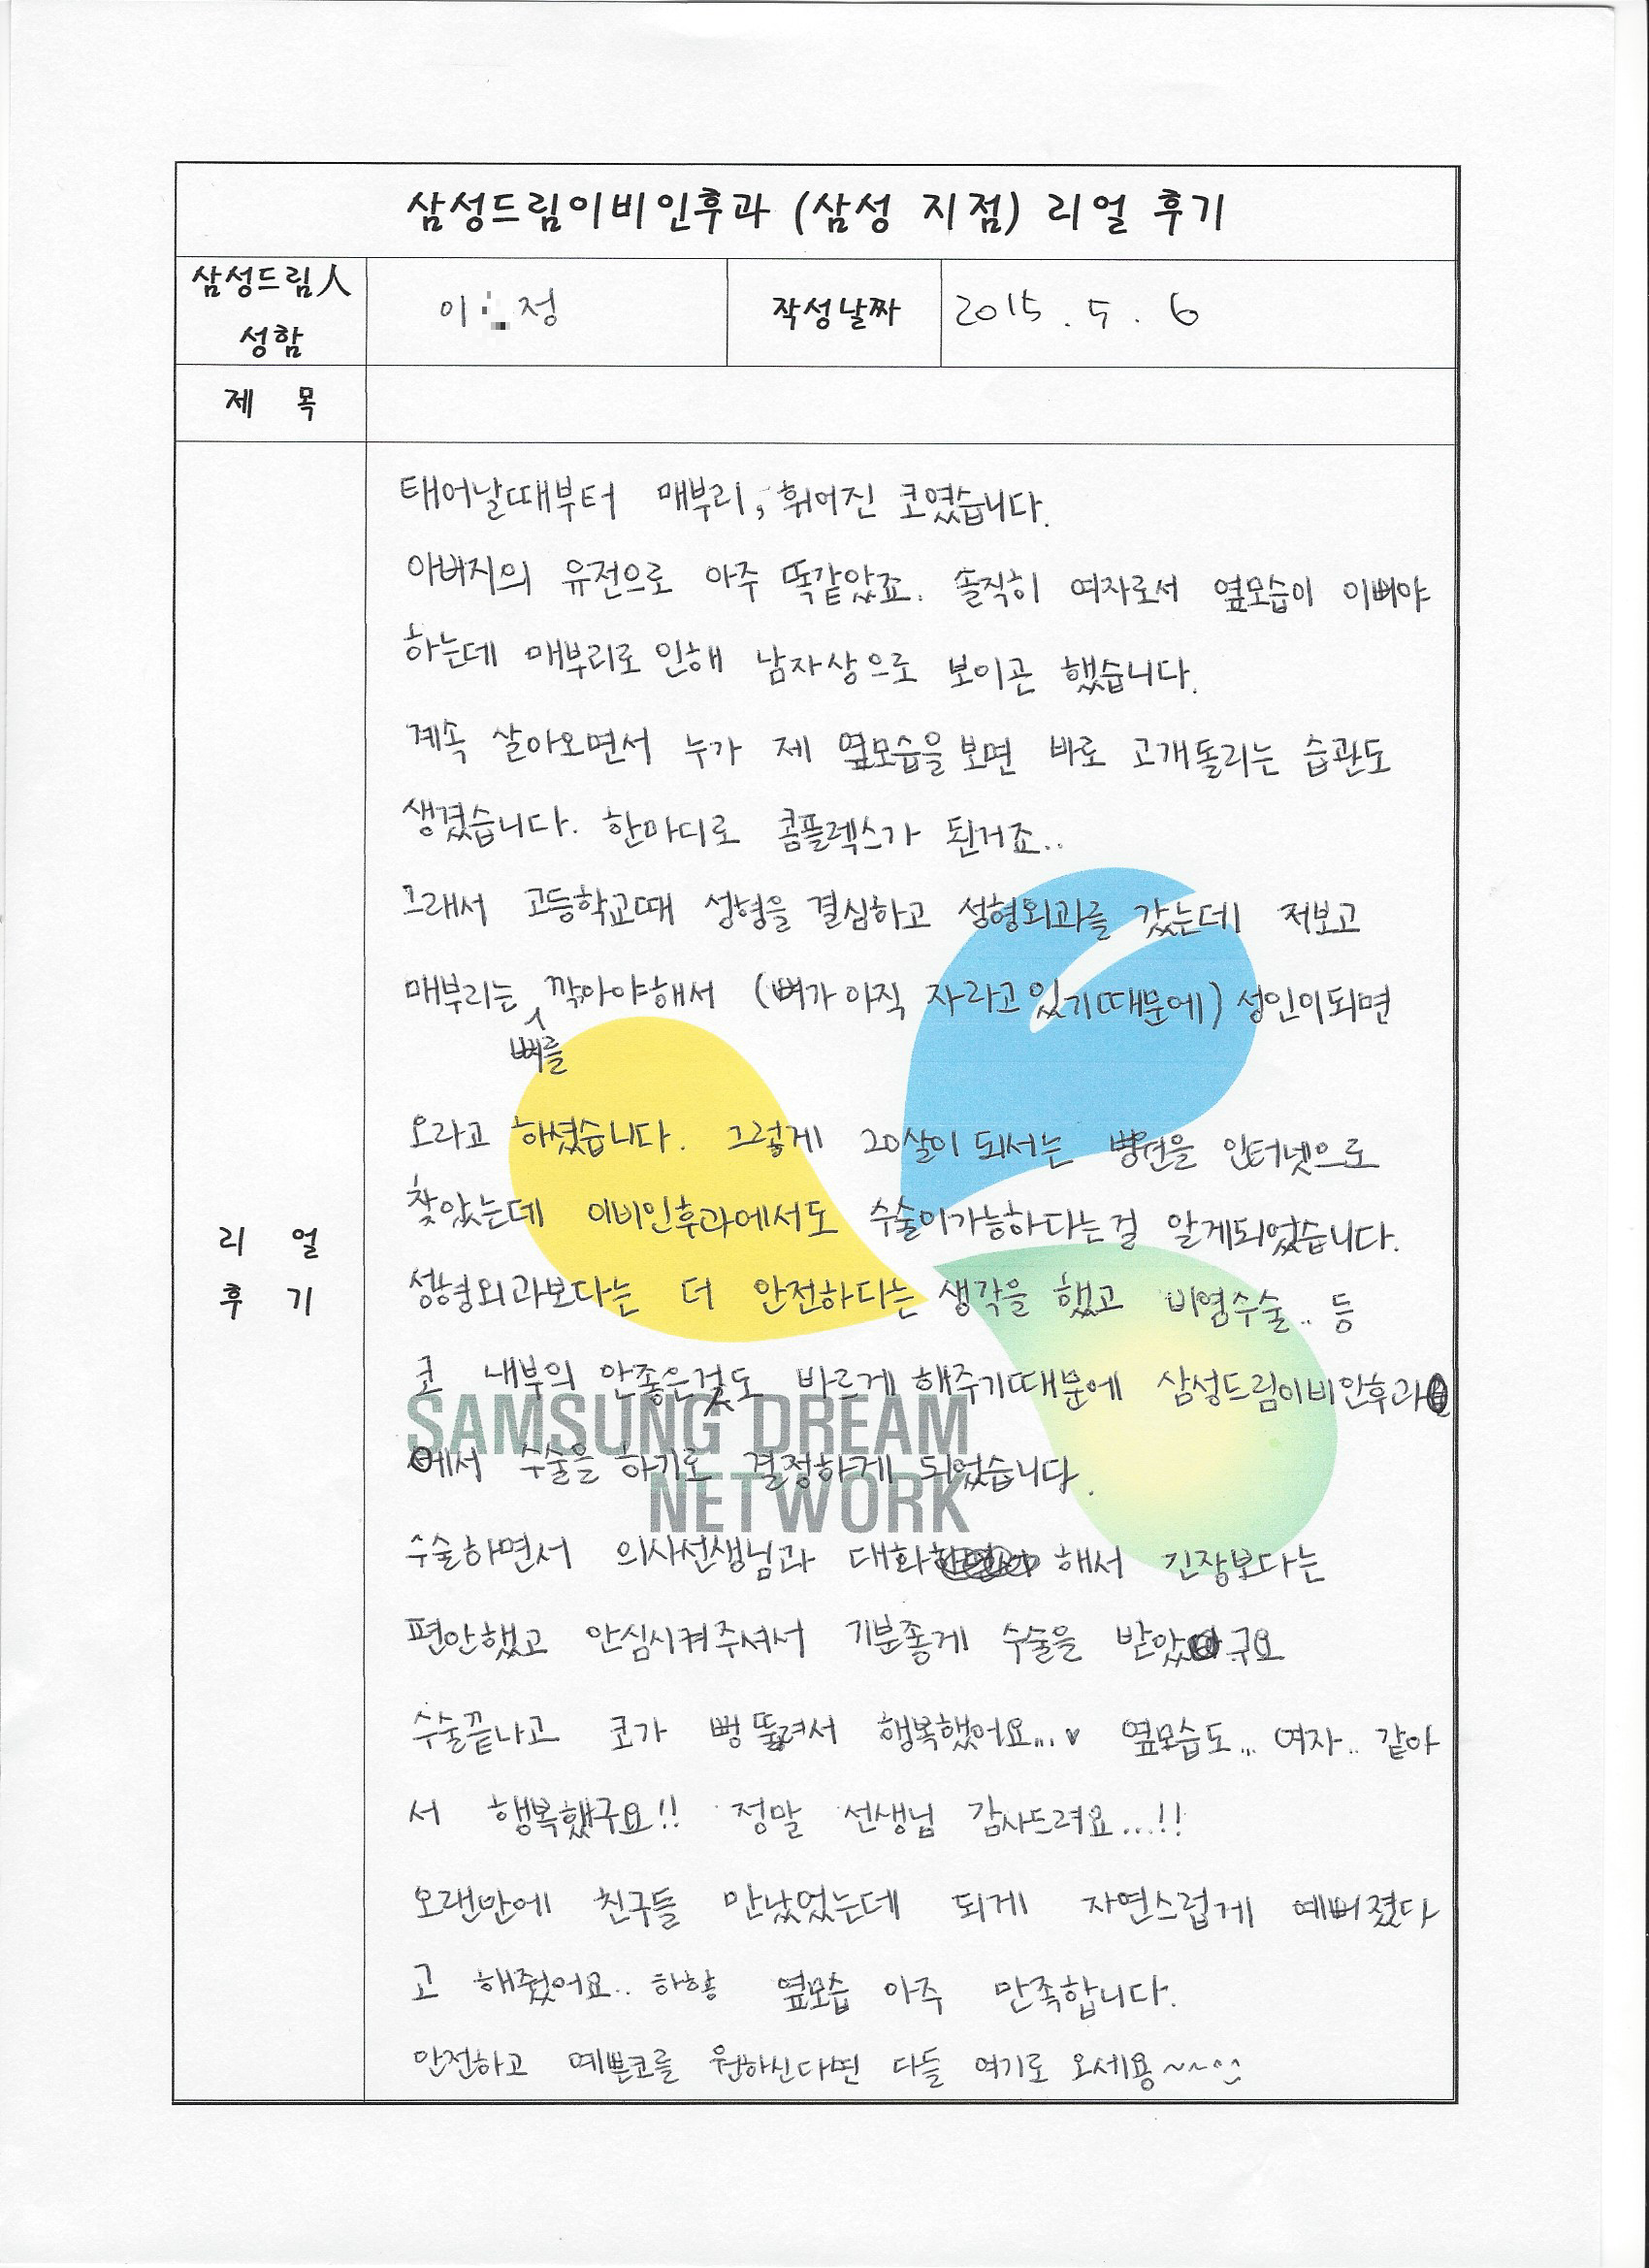 삼성드림이비인후과 (삼성 지점) 리얼 후기
삼성드림人
성함
이 정
작성날짜
2015. 5. 6
제 목
리 얼
후 기
태어날때부터 매부리, 휘어진 코였습니다.
아버지의 유전으로 아주 똑같았죠. 솔직히 여자로서 옆모습이 이뻐야
하는데 매부리로 인해 남자상으로 보이곤 했습니다.
계속 살아오면서 누가 제 옆모습을 보면 바로 고개돌리는 습관도
생겼습니다. 한마디로 콤플렉스가 된거죠..
그래서 고등학교때 성형을 결심하고 성형외과를 갔는데 저보고
매부리는 깍아야해서 (뼈가 아직 자라고있기때문에) 성인이되면
뼈를
오라고 하셨습니다. 그렇게 20살이 되서는 병원을 인터넷으로
찾았는데 이비인후과에서도 수술이가능하다는걸 알게되었습니다.
성형외과보다는 더 안전하다는 생각을 했고 비염수술.. 등
코 내부의 안좋은것도 바르게 해주기때문에 삼성드림이비인후과
에서 수술을 하기로 결정하게 되었습니다.
수술하면서 의사선생님과 대화 해서 긴장보다는
편안했고 안심시켜주셔서 기분좋게 수술을 받았구요
수술끝나고 코가 뻥 뚫려서 행복했어요...♥ 옆모습도... 여자.. 같아
서 행복했구요!! 정말 선생님 감사드려요...!!
오랜만에 친구들 만났었는데 되게 자연스럽게 예뻐졌다
고 해줬어요.. 하핳 옆모습 아주 만족합니다.
안전하고 예쁜코를 원하신다면 다들 여기로 오세용~~^^
SAMSUNG DREAM
NETWORK